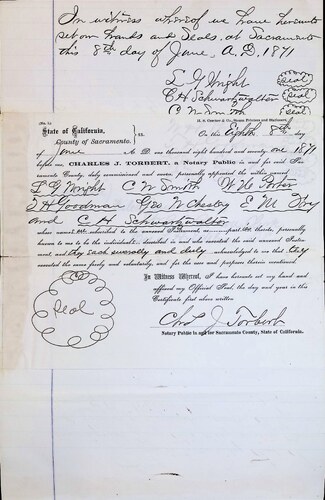 In witness whereof we have hereunto
set our hands and seals, at Sacramento
this 8th day of June, A.D. 1871
L G Wright Seal
C H Schwartzwaltor Seal
C N Smith Seal
(No. 1.) H. S. Crocker & Co., Steam Printers and Stationers.
State of California, } ss.
County of Sacramento.
On this Eighth 8th day
of June A. D. one thousand eight hundred and seventy one 1871
before me, CHARLES J. TORBERT, a Notary Public in and for said Sacramento
County, duly commissioned and sworn, personally appeared the within named
L G Wright C N Smith W H Porter
J H Goodman Geo W Chesley E M
and C H Schwartzwaltor
whose names are subscribed to the annexed Instrument, as part thereto, personally
known to me to be the individuals described in and who executed the said annexed Instrument,
and they each severally and duly acknowledged to me that they
executed the same freely and voluntarily, and for the uses and purposes therein mentioned.
In Witness Whereof, I have hereunto set my hand and
affixed my Official Seal, the day and year in this
Certificate first above written.
Seal
Chs J Torbert
Notary Public in and for Sacramento County, State of California.